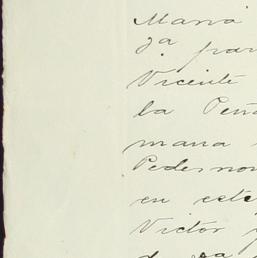 Maria
3ª par
Vicente
la Peñ
mana
Pedernon
en este
Victor y